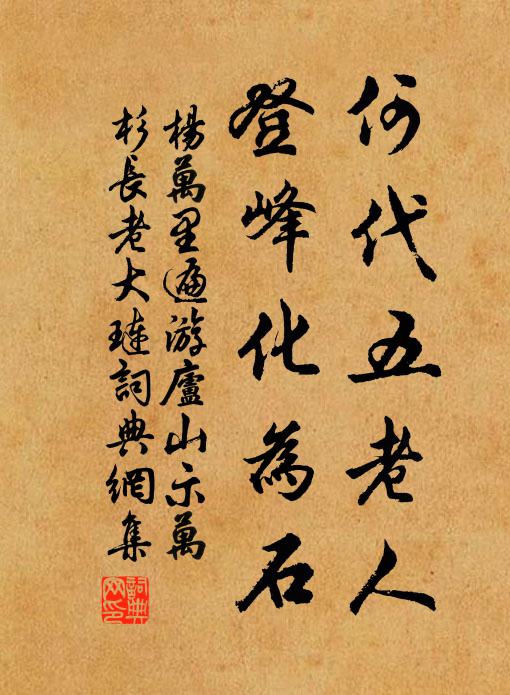 何代五老人
登峰化為石
楊萬里遍游廬山示萬
杉長老大璉詞典網集
詞典
网印